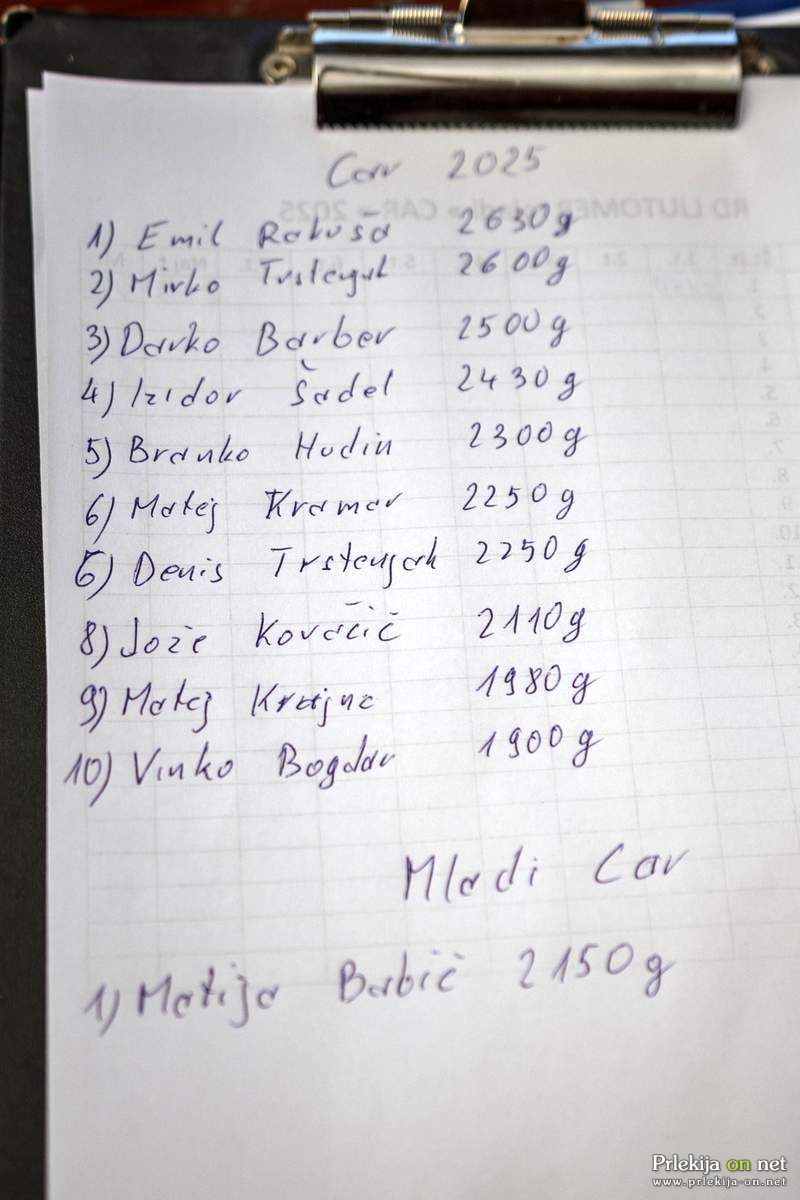 Car 2025
1) Emil Rakuša 2630g
2) Mirko Trstenjak 2600g
3) Darko Barber 2500g
4) Izidor Šadel 2430g
5) Branko Hudin 2300g
6) Matej Kramar 2250g
6) Denis Trstenjak 2250g
8) Jože Kovačič 2110g
9) Matej Krajnc 1980g
10) Vinko Bogdar 1900g
Mladi Car
1) Matija Babič 2150g
RD LJUTOMER CAR - 2025
Prlekija on net
www.prlekija-on.net